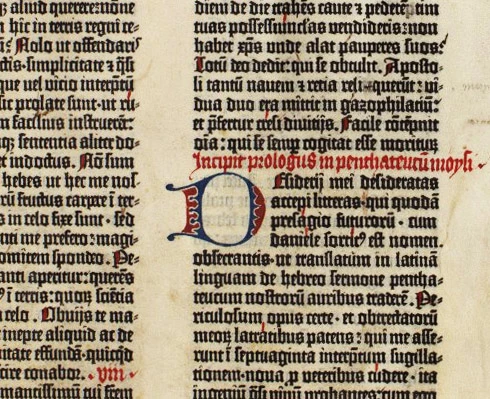 aliud querere: nõne
hic in terris regnũ ce-
Nolo ut offendaris
simplicitate ⁊ q̃si
que vel vicio interp̃tũ
sic prolate sunt· ut ru-
m facilius instruerẽt:
sententia aliter do-
et indoctus. Nõ sum
hebes ut hec me nos-
rũ fructus carpere ĩ ter-
s in celo fixe sunt· sed
nti me prefero: magi-
omitem spondeo. Pe-
anti aperitur: querẽs
ĩ terris: quoꝝ sciẽtia
celo. Obuijs te ma-
inepte aliquid ac de
itate effundã· quicq̃d
scire conabor. viii
mantissimũ tui frem
diem de die trahẽs caute ⁊ pedetẽtim
tuas possessiũculas vendideris: non
habet xp̃s unde alat pauperes suos:
Totũ deo dedit: qui se obtulit. Aposto-
li tantũ nauem ⁊ retia reliquerũt: vi-
dua duo era mittit in gazophilaciũ:
et p̃fertur cresi diuitijs. Facile cõtẽpnit
oĩa: qui se semp cogitat esse moriturũ
Incipit prologus in penthateucũ moysi
Desiderij mei desideratas
accepi litteras· qui quodã
presagio futurorũ· cum
daniele sortitꝰ est nomen·
obsecrantis· ut translatũ in latinã
linguam de hebreo sermone pentha-
teucum nostrorũ auribus traderẽ. Pe-
riculosum opus certe· et obtrectatorũ
meoꝝ latratibus patens: qui me asse-
runt ĩ septuaginta interp̃tum sugilla-
tionem· noua ꝓ veteribus cudere· ita
ingeniũ q̃si vinũ probantes: cum ego